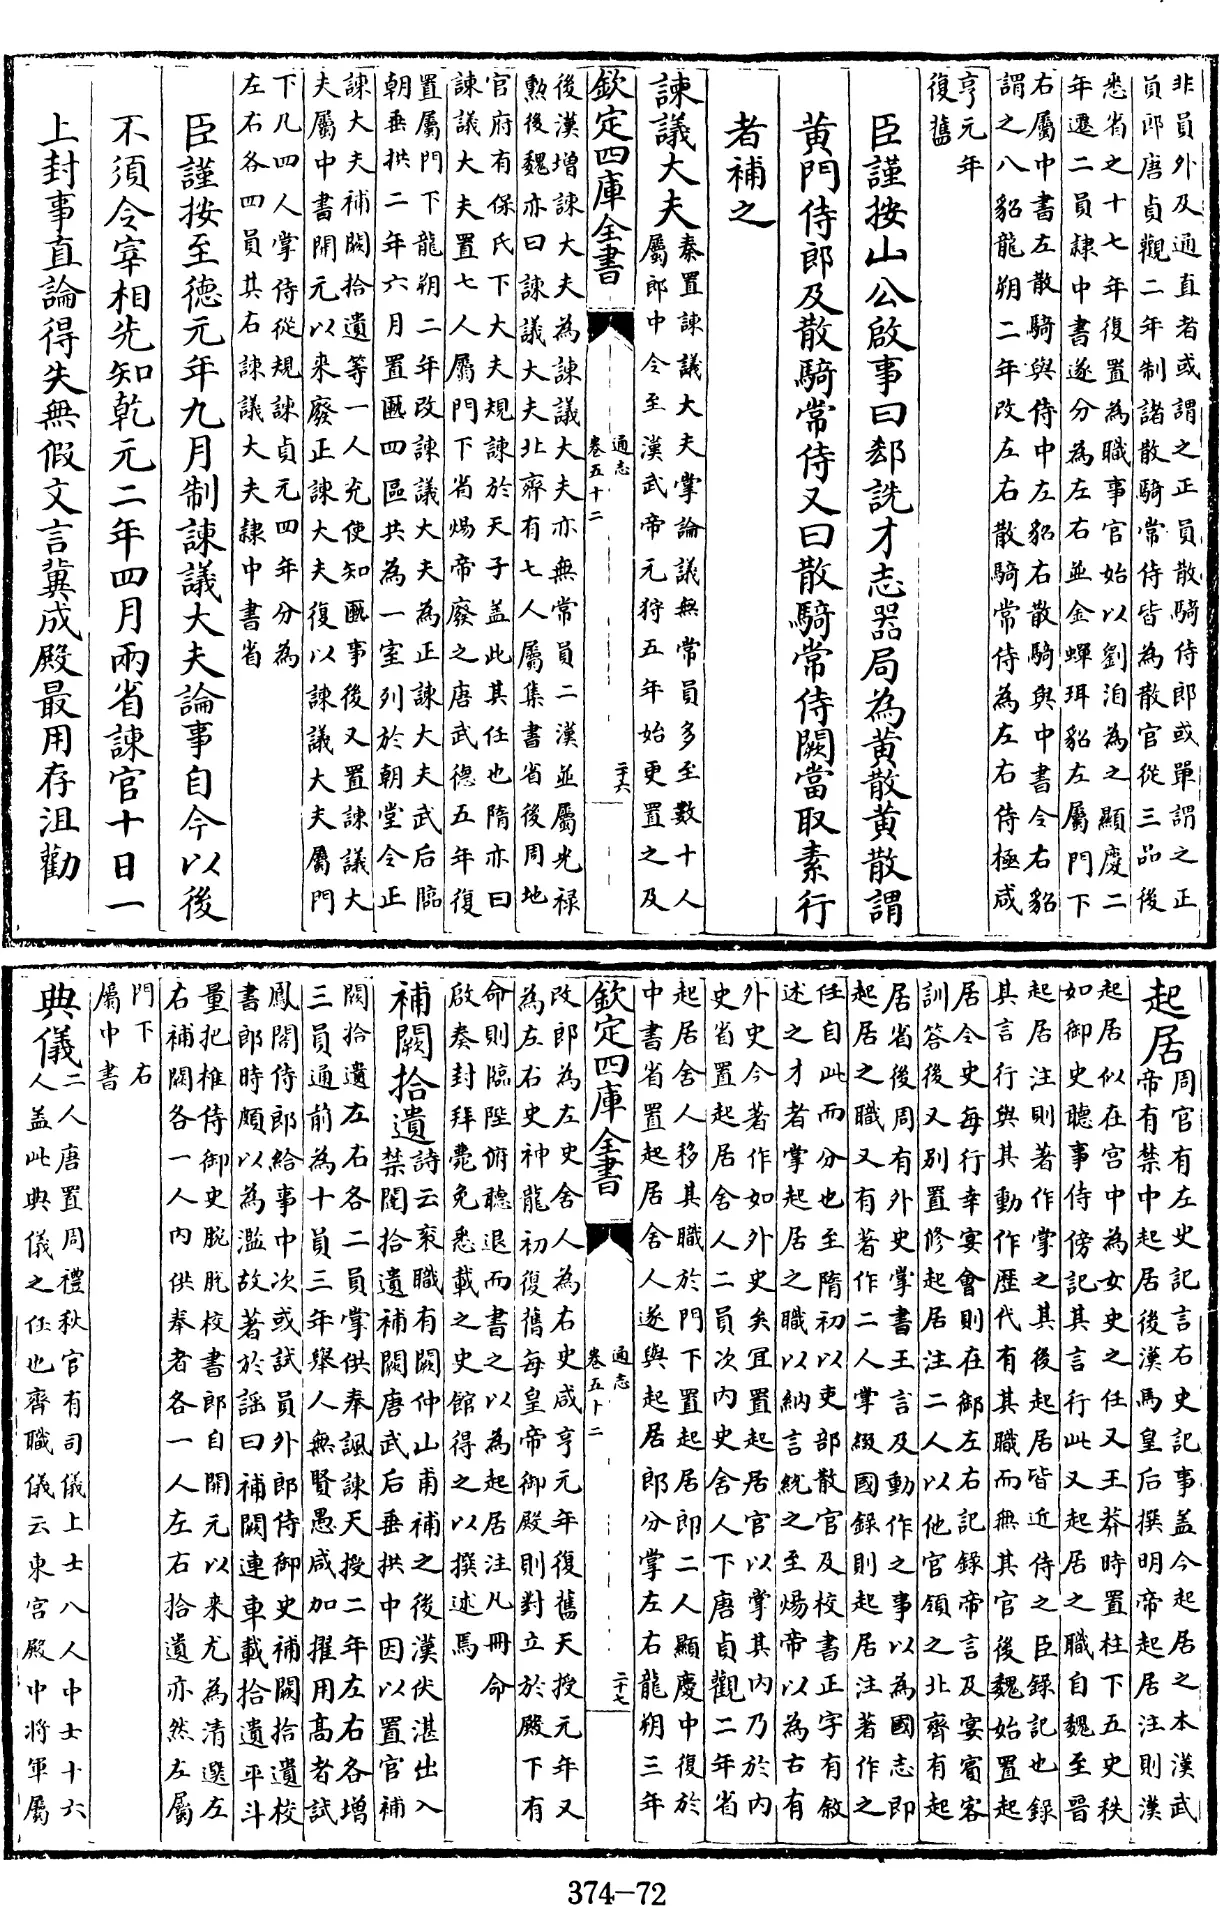 非員外及通直者或謂之正員散騎侍郎或單謂之正
員郎唐貞觀二年制諸散騎常侍皆為散官從三品後
悉省之十七年復置為職事官始以劉洎為之顯慶二
年遷二員隸中書遂分為左右並金蟬珥貂左屬門下
右屬中書左散騎與侍中左貂右散騎與中書令右貂
謂之八貂龍朔二年改左右散騎常侍為左右侍極咸
亨元年
復舊
臣謹按山公啟事曰郄詵才志器局為黃散黃散謂
黃門侍郎及散騎常侍又曰散騎常侍闕當取素行
者補之
諫議大夫
秦置諫議大夫掌論議無常員多至數十人
屬郎中令至漢武帝元狩五年始更置之及
欽定四庫全書
通志
卷五十二
二十六
後漢增諫大夫為諫議大夫亦無常員二漢並屬光祿
勲後魏亦曰諫議大夫北齊有七人屬集書省後周地
官府有保氏下大夫規諫於天子蓋此其任也隋亦曰
諫議大夫置七人屬門下省煬帝廢之唐武德五年復
置屬門下龍朔二年改諫議大夫為正諫大夫武后臨
朝垂拱二年六月置匭四區共為一室列於朝堂令正
諫大夫補闕拾遺等一人充使知匭事後又置諫議大
夫屬中書開元以來廢正諫大夫復以諫議大夫屬門
下凡四人掌侍從規諫貞元四年分為
左右各四員其右諫議大夫隸中書省
臣謹按至德元年九月制諫議大夫論事自今以後
不須令宰相先知乾元二年四月兩省諫官十日一
上封事直論得失無假文言冀成殿最用存沮勸
起居
周官有左史記言右史記事蓋今起居之本漢武
帝有禁中起居後漢馬皇后撰明帝起居注則漢
起居似在宮中為女史之任又王莽時置柱下五史秩
如御史聽事侍傍記其言行此又起居之職自魏至晉
起居注則著作掌之其後起居皆近侍之臣錄記也錄
其言行與其動作歴代有其職而無其官後魏始置起
居令史每行幸宴會則在御左右記錄帝言及宴賓客
訓答後又別置修起居注二人以他官領之北齊有起
居省後周有外史掌書王言及動作之事以為國志即
起居之職又有著作二人掌綴國錄則起居注著作之
任自此而分也至隋初以吏部散官及校書正字有敘
述之才者掌起居之職以納言統之至煬帝以為古有
外史今著作如外史矣宜置起居官以掌其內乃於內
史省置起居舍人二員次內史舍人下唐貞觀二年省
起居舍人移其職於門下置起居郎二人顯慶中復於
中書省置起居舍人遂與起居郎分掌左右龍朔三年
欽定四庫全書
通志
卷五十二
二十七
改郎為左史舍人為右史咸亨元年復舊天授元年又
為左右史神龍初復舊每皇帝御殿則對立於殿下有
命則臨陛俯聽退而書之以為起居注凡冊命
啟奏封拜薨免悉載之史館得之以撰述焉
補闕拾遺
詩云袞職有闕仲山甫補之後漢伏湛出入
禁闥拾遺補闕唐武后垂拱中因以置官補
闕拾遺左右各二員掌供奉諷諫天授二年左右各增
三員通前為十員三年舉人無賢愚咸加擢用高者試
鳳閣侍郎給事中次或試員外郎侍御史補闕拾遺校
書郎時頗以為濫故著於謡曰補闕連車載拾遺平斗
量把椎侍御史脫校書郎自開元以來尤為清選左
右補闕各一人內供奉者各一人左右拾遺亦然左屬
門下右
屬中書
典儀
二人唐置周禮秋官有司儀上士八人中士十六
人蓋此典儀之任也齊職儀云東宮殿中將軍屬
374-72